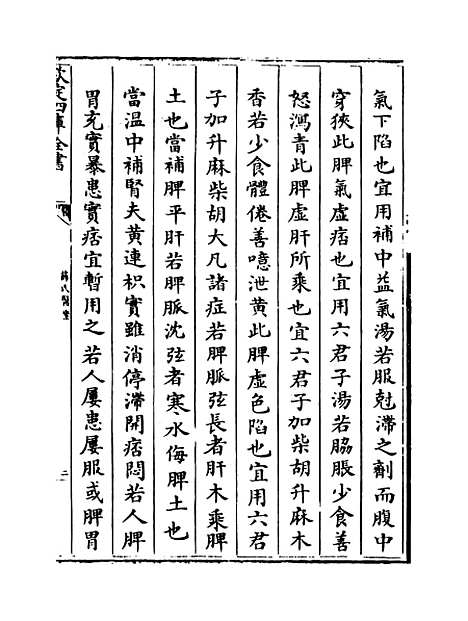 氣下陷也宜用補中益氣湯若服尅滯之劑而腹中
穿狹此脾氣虛痞也宜用六君子湯若脇脹少食善
怒瀉青此脾虛肝所乘也宜六君子加柴胡升麻木
香若少食體倦善噫泄黄此脾虛色陷也宜用六君
子加升麻柴胡大凡諸症若脾脈弦長者肝木乘脾
土也當補脾平肝若脾脈沈弦者寒水侮脾土也
當温中補腎夫黄連枳實雖消停滯開痞悶若人脾
胃充實暴患實痞宜暫用之若人屢患屢服或脾胃
欽定四庫全書
薛氏醫案
二